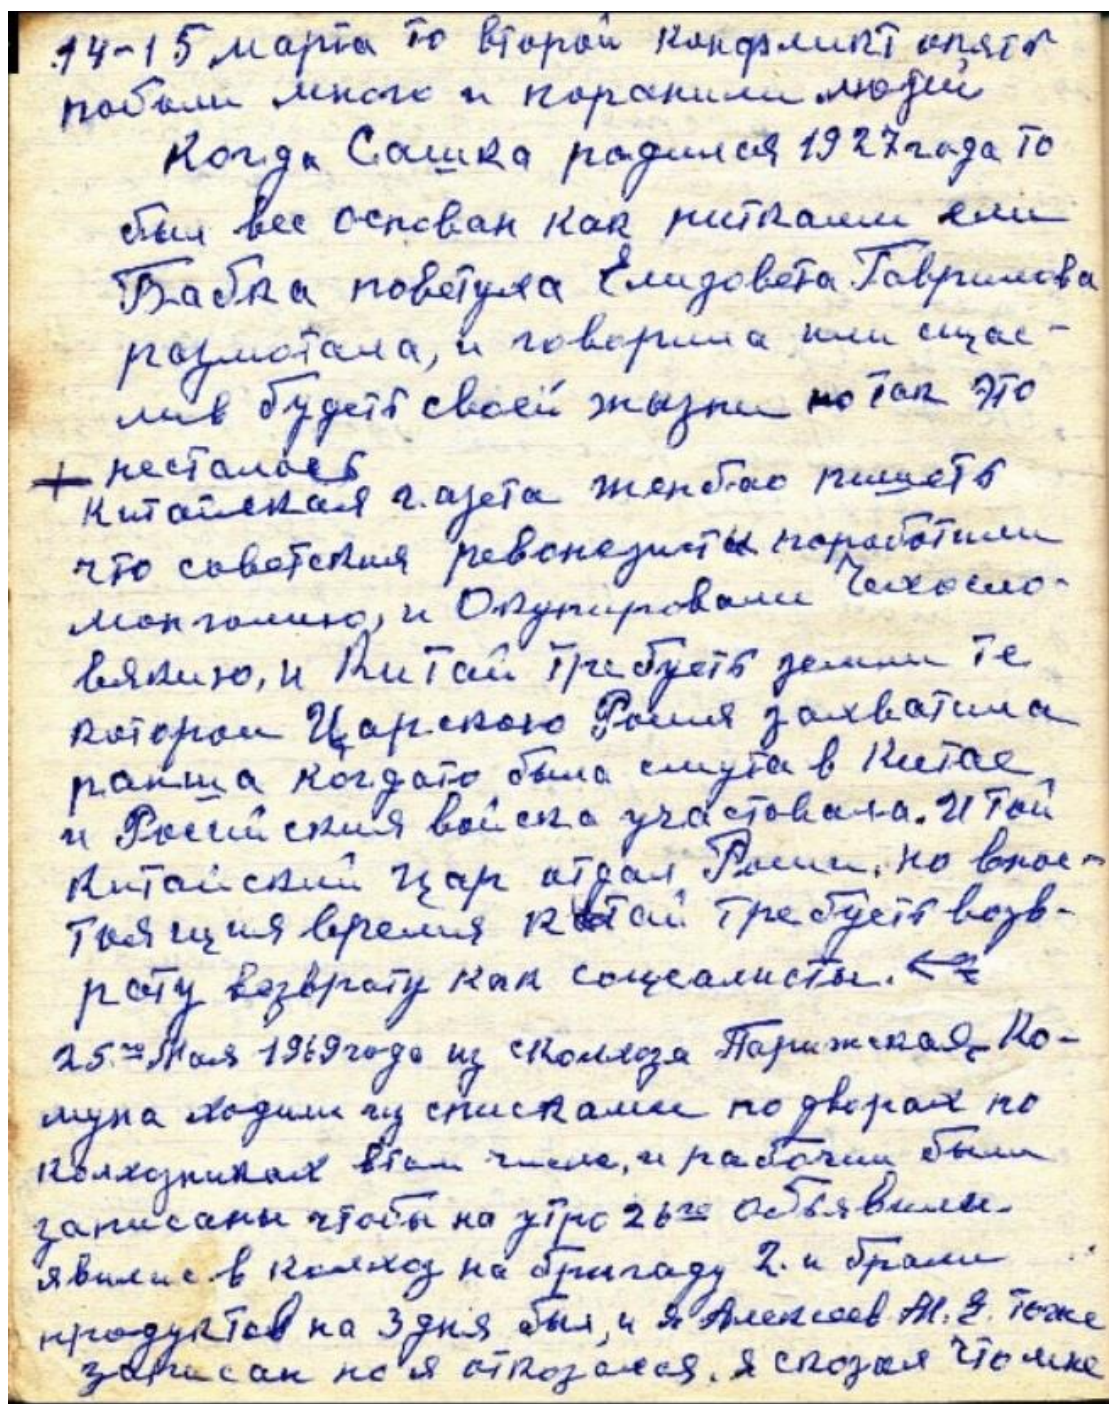 14-15 марта то второй конфликт опять
побыли много и поранили людей
Когда Сашка радился 1927 года то
был вес основан как нитками ели
Бабка поветуха Елизовета Гаврилова
размотала, и говорила или щас-
лив будеть своей жызни но так это
несталось
Китайская газета женбао пишеть
что советския ревонезисты поработили
монголию, и Окупировали Чехосло-
вякию, и Китай требуеть земли те
которои Царскою Росия захватила
ранша когдато была смута в Китае
и Росийския войска участовала. И той
Китайский цар отдал Росии, но внос-
тоящия время Китай требуеть возв-
рату возврату как соцеалисты.
25.го Мая 1969 года из сколхоза Парижская Ко-
муна ходили из списками по дворах по
колхозниках втом числе, и рабочии были
записаны чтобы на утро 26го обьявили.
явилис в колхоз на бригаду 2. и брали
продуктов на 3 дня был, и я Алексеев М. Е. тоже
записан но я отказался. я сказал что мне